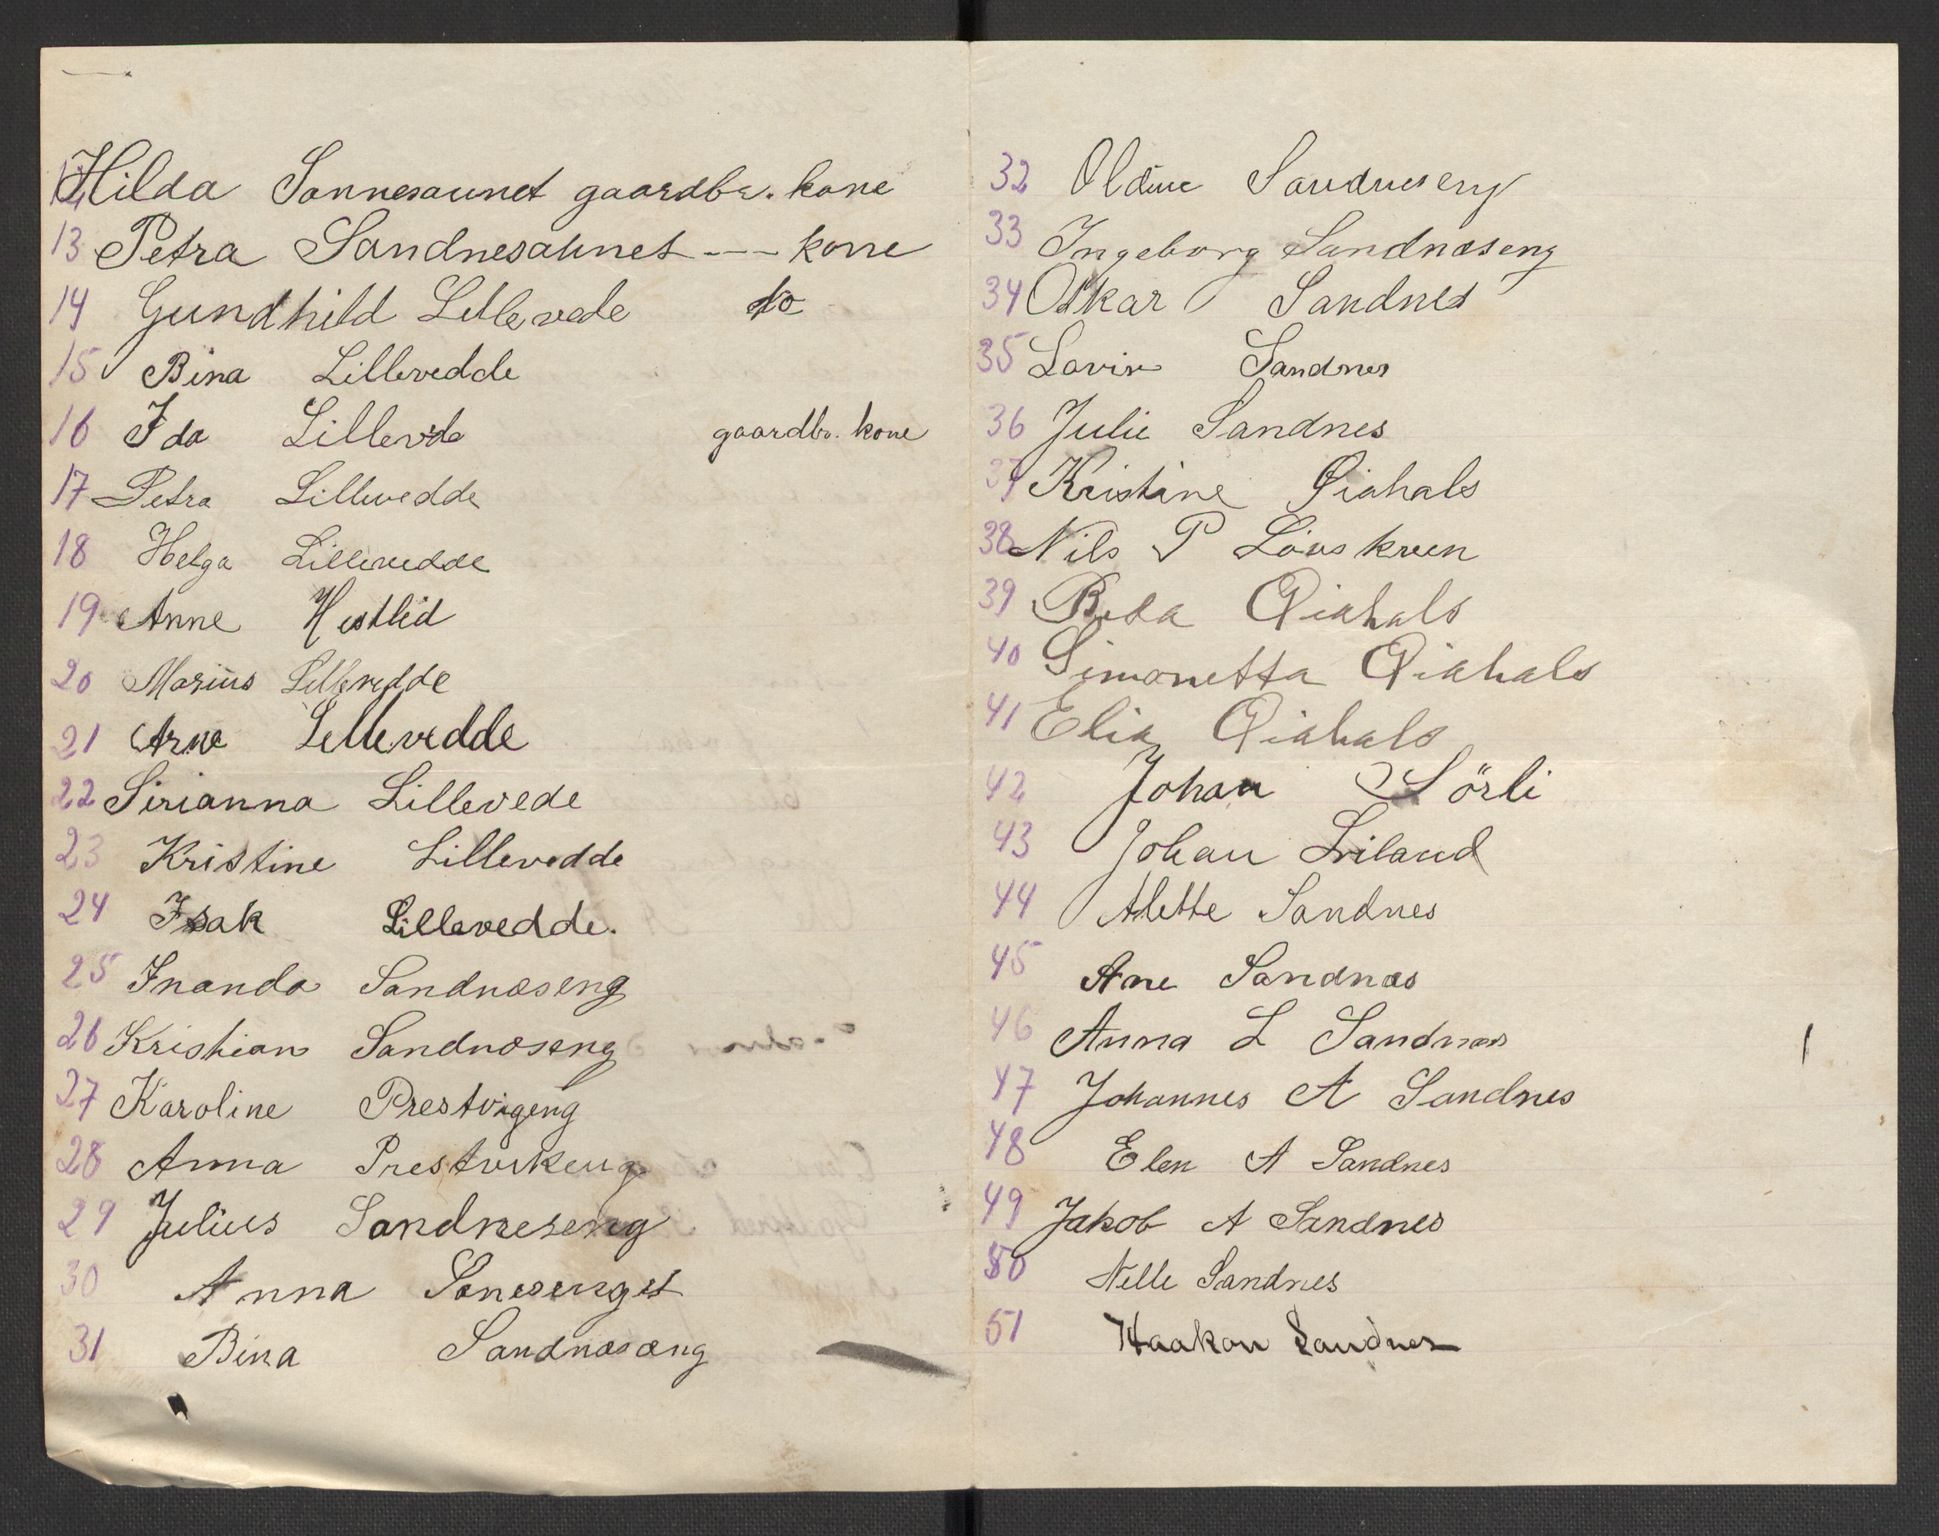 12 Hilda Sannesaunet gaardbr. kone
13 Petra Sandnesaunet --- kone
14 Gundhild Lillevede do
15 Bina Lillevedde
16 Ida Lillevde gaardbr. kone
17 Petra Lillevedde
18 Helga Lillevedde
19 Anne Hestlid
20 Marius Lillevedde
21 Arne Lillevedde
22 Sirianna Lillevede
23 Kristine Lillevedde
24 Isak Lillevedde.
25 Inanda Sandnæseng
26 Kristian Sandnæseng
27 Karoline Prestvigeng
28 Anna Prestvikeng
29 Julius Sandneseng
30 Anna Sanesenget
31 Bina Sandnæsæng
32 Oldine Sandneseng
33 Ingeborg Sandnæseng
34 Oskar Sandnes
35 Lovin Sandnes
36 Julie Sandnes
37 Kristine Qiahals
38 Nils P Lövskreen
39 Beda Qiahals
40 Simonetta Qiahals
41 Elia Qiahals
42 Johan Sörli
43 Johan Liland
44 Alette Sandnes
45 Ane Sandnæs
46 Anna L Sandnæs
47 Johannes A Sandnes
48 Elen A Sandnes
49 Jakob A Sandnes
50 Nelle Sandnes
51 Haakon Sandnes